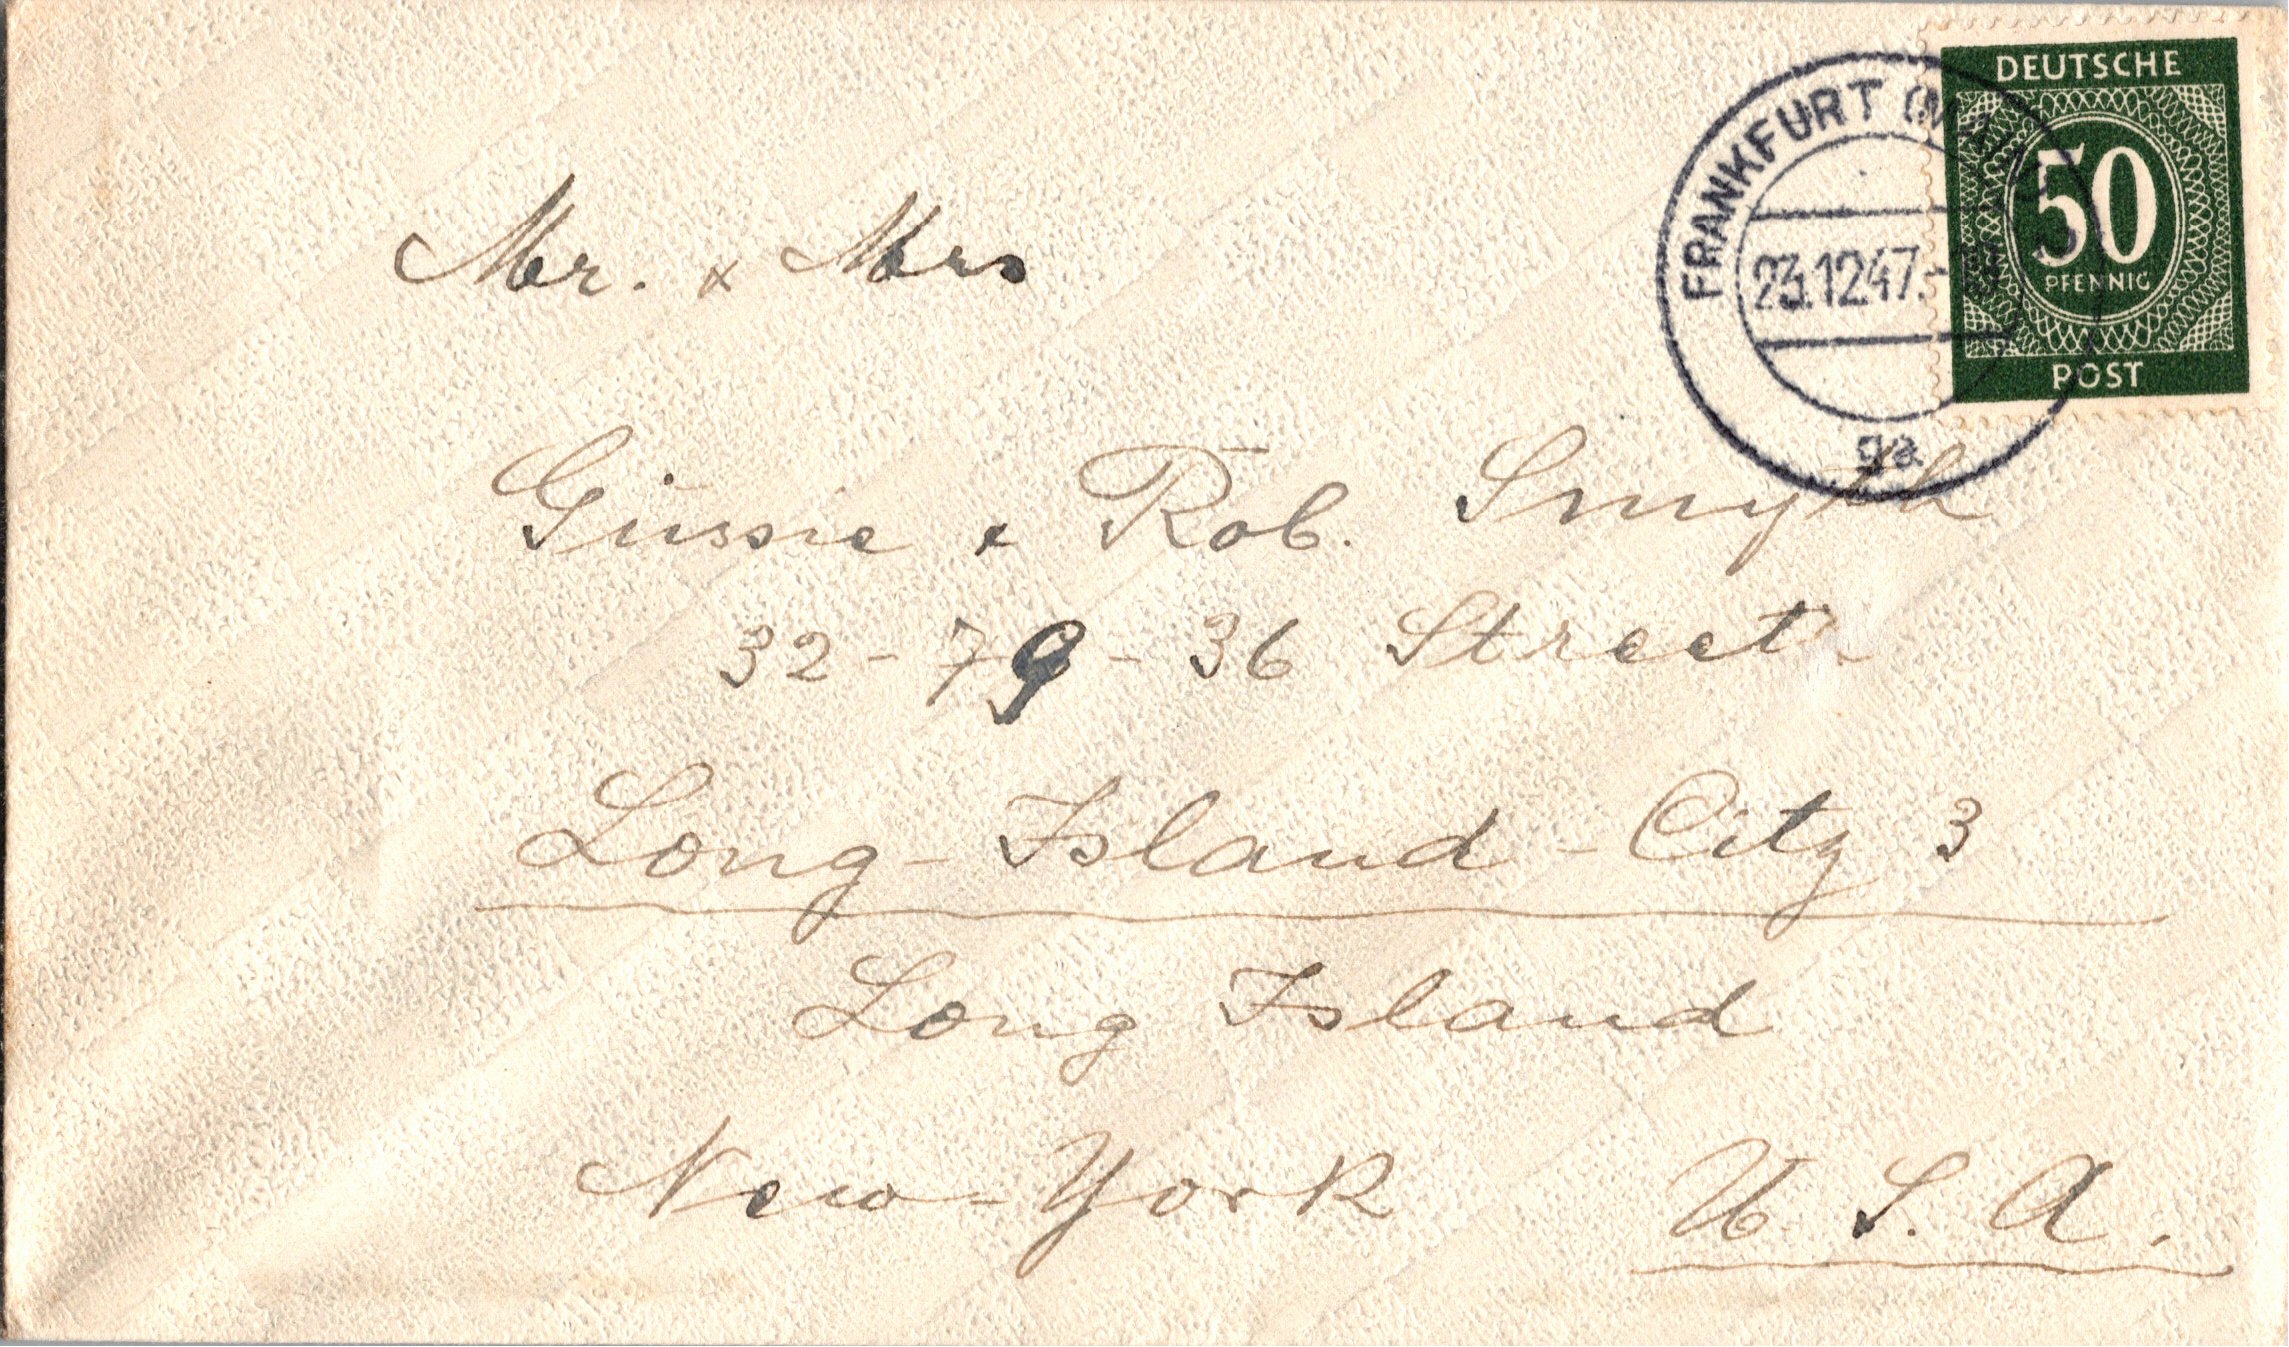 DEUTSCHE
50
PFENNIG
POST
FRANKFURT (MAIN)
23.12.47.-
ga
Mr. & Mrs
Gussie & Rob. Smyth
32-79-36 Street
Long-Island-City 3
Long Island
New-York U.S.A.